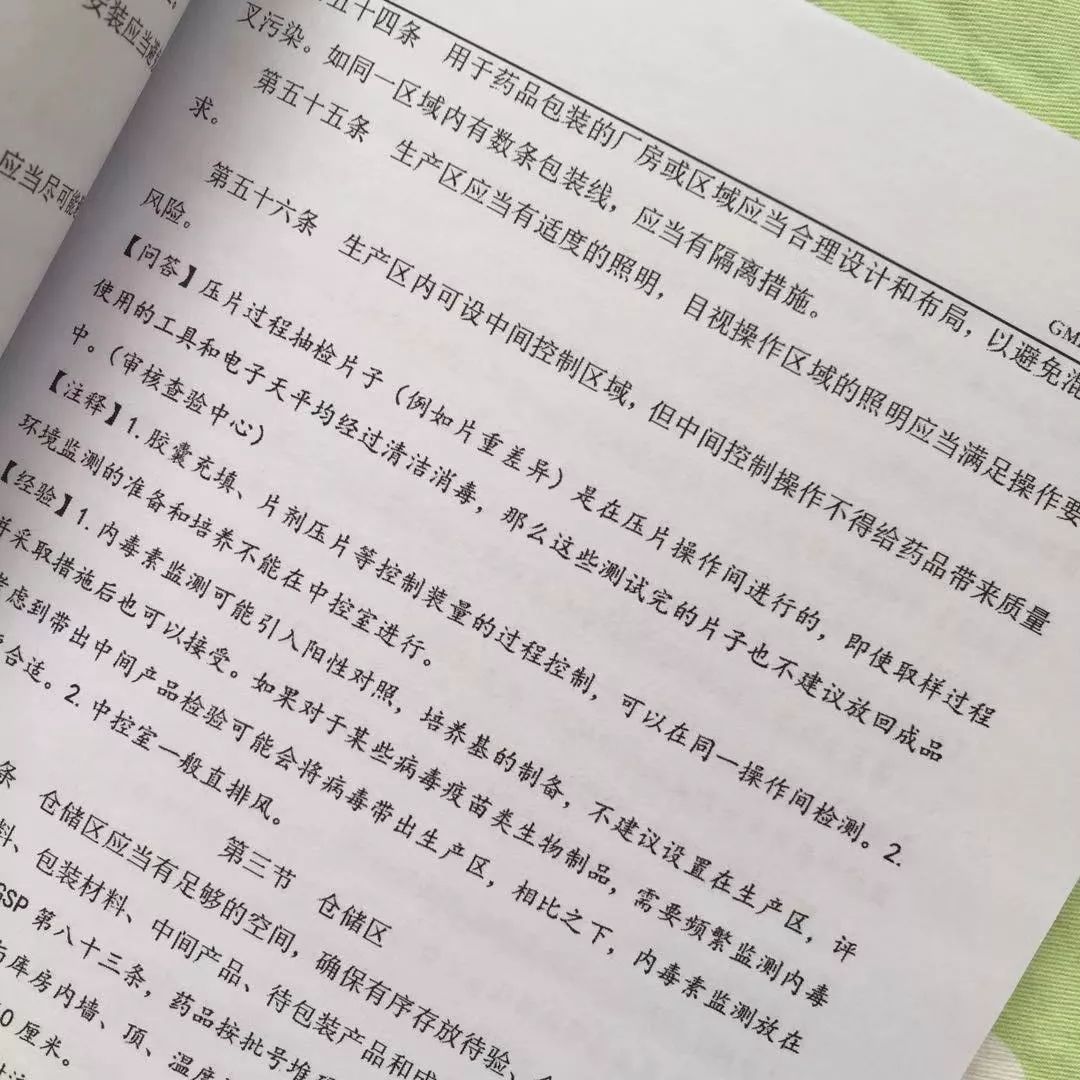 安装应当
应当尽可能
GM
五十四条 用于药品包装的厂房或区域应当合理设计和布局，以避免混
叉污染。如同一区域内有数条包装线，应当有隔离措施。
第五十五条 生产区应当有适度的照明，目视操作区域的照明应当满足操作要
求。
第五十六条 生产区内可设中间控制区域，但中间控制操作不得给药品带来质量
风险。
【问答】压片过程抽检片子（例如片重差异）是在压片操作间进行的，即使取样过程
使用的工具和电子天平均经过清洁消毒，那么这些测试完的片子也不建议放回成品
中。（审核查验中心）
【注释】1.胶囊充填、片剂压片等控制装量的过程控制，可以在同一操作间检测。2.
环境监测的准备和培养不能在中控室进行。
【经验】1.内毒素监测可能引入阳性对照，培养基的制备，不建议设置在生产区，评
并采取措施后也可以接受。如果对于某些病毒疫苗类生物制品，需要频繁监测内毒
虑到带出中间产品检验可能会将病毒带出生产区，相比之下，内毒素监测放在
合适。2.中控室一般直排风。
第三节 仓储区
条 仓储区应当有足够的空间，确保有序存放待验、
料、包装材料、中间产品、待包装产品和成
GSP 第八十三条，药品按批号堆
库房内墙、顶、温度
0 厘米。